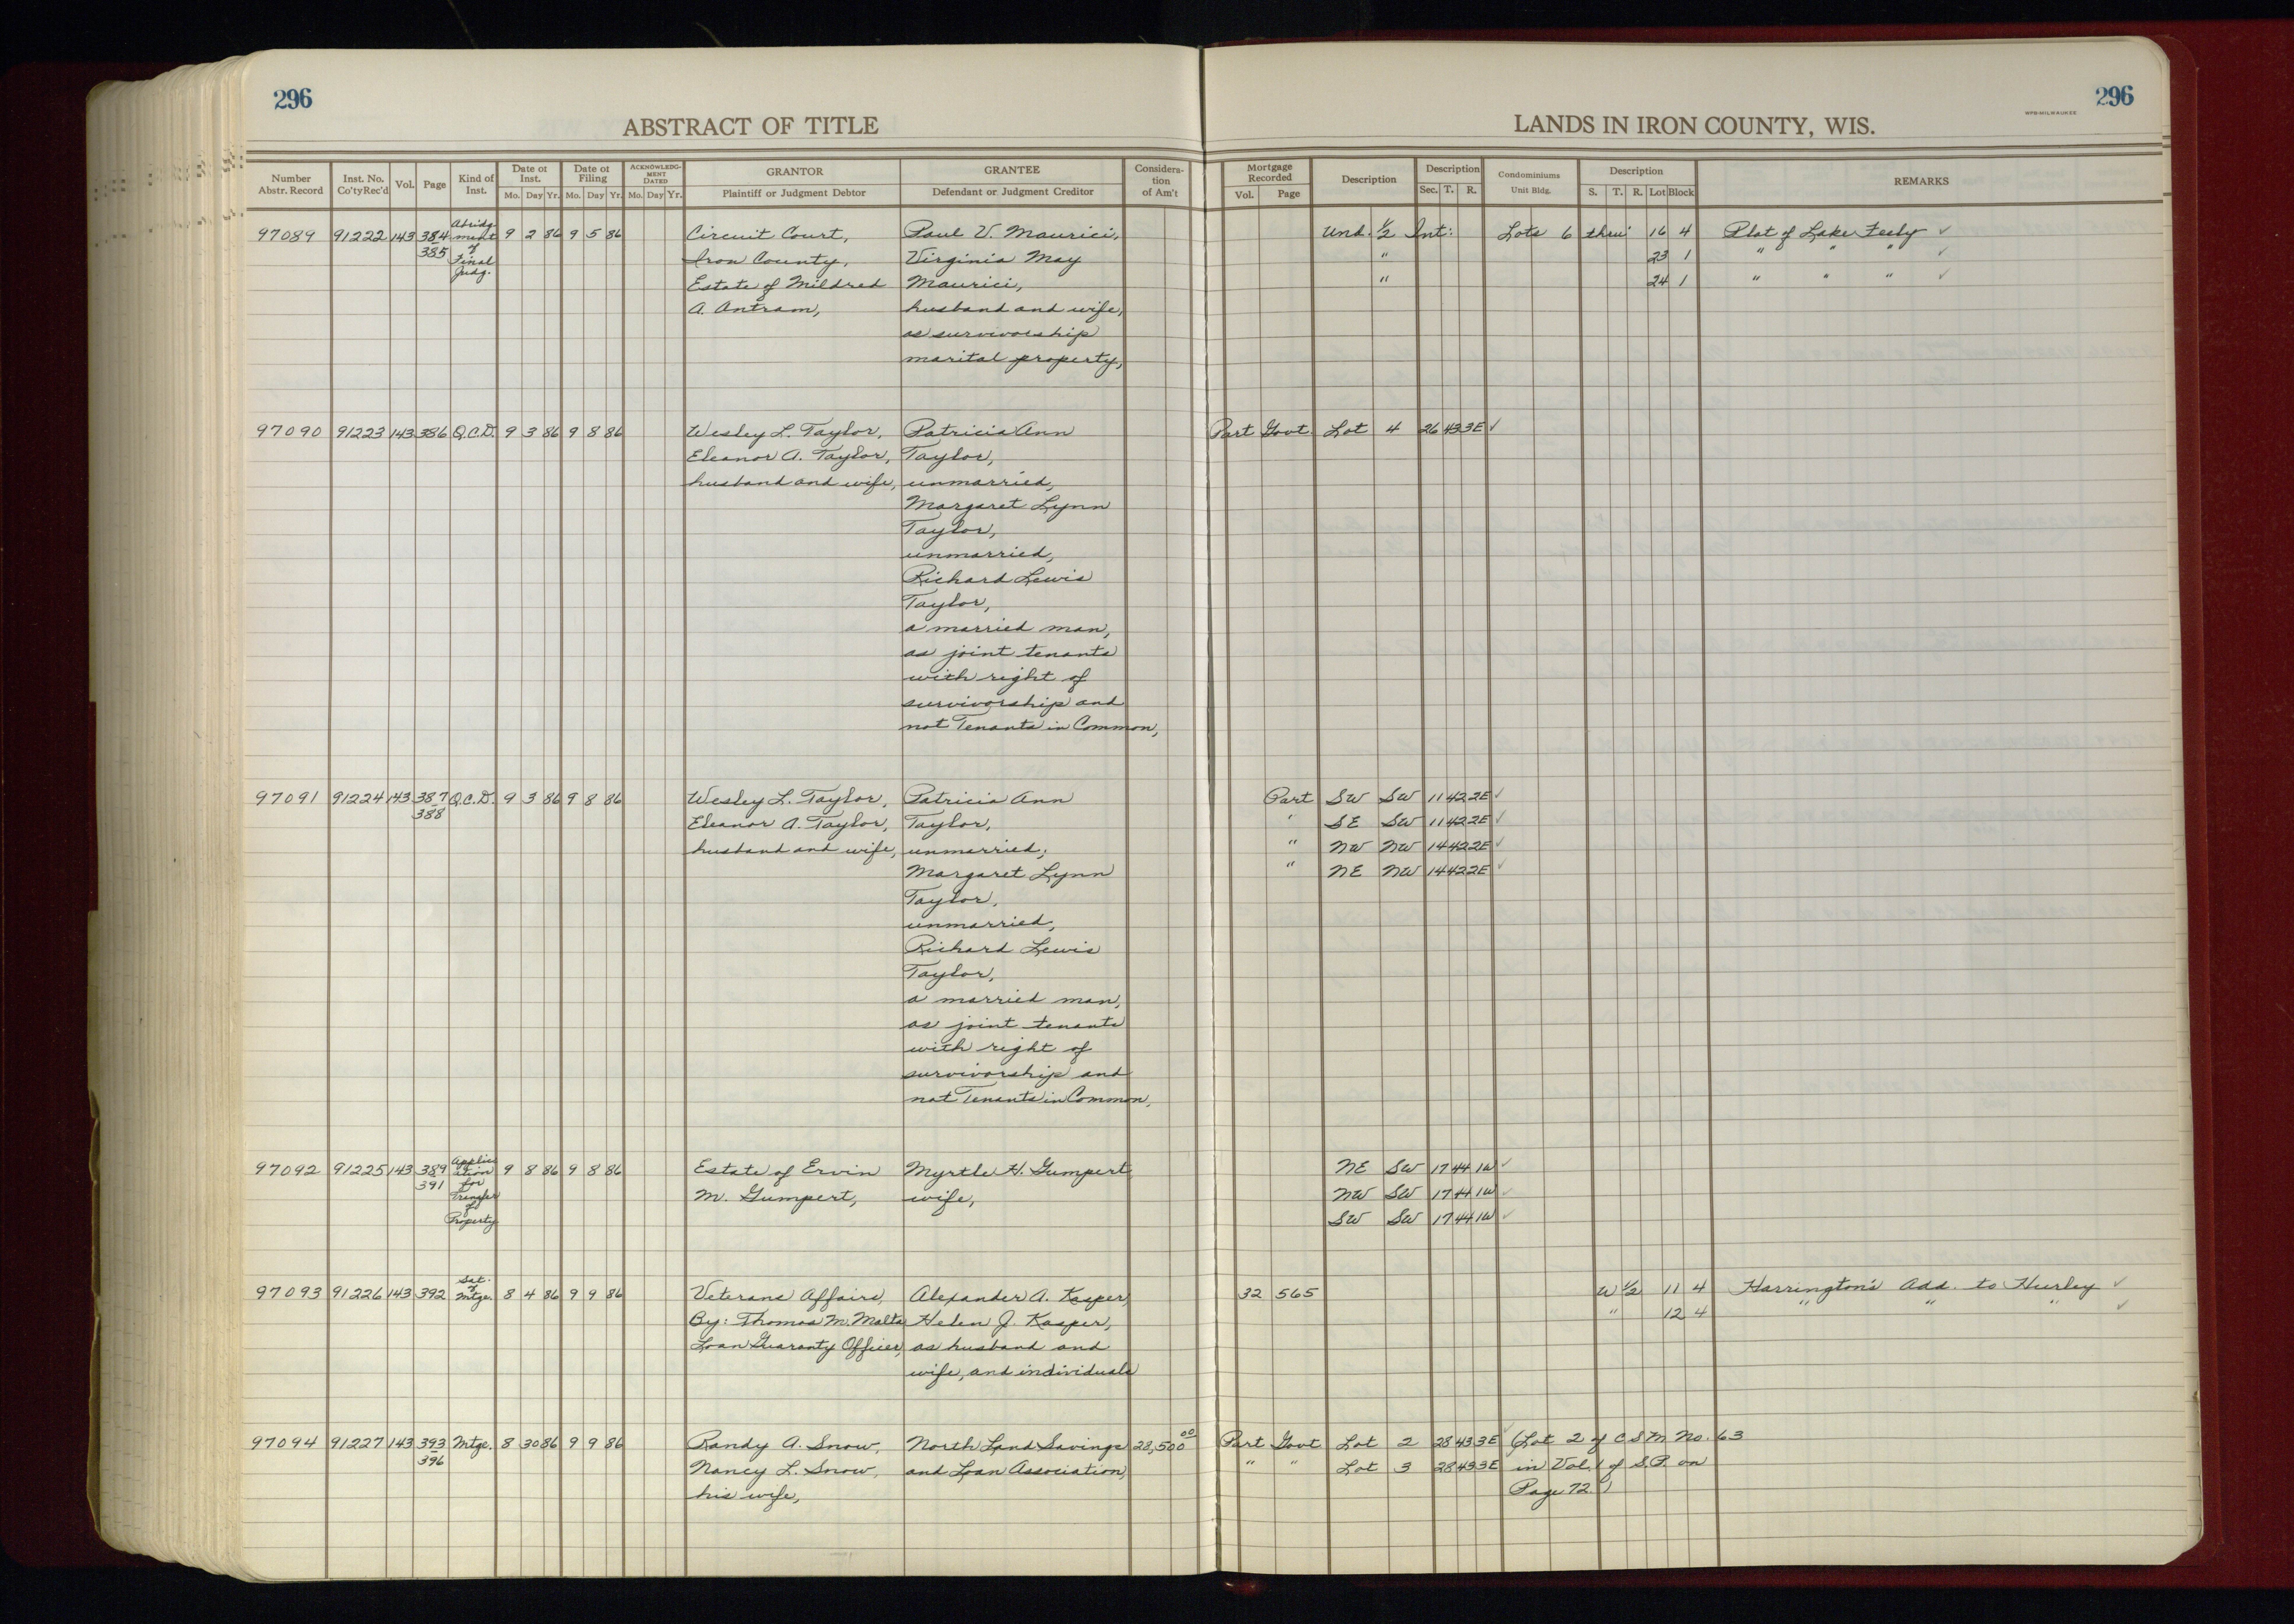 296
296
ABSTRACT OF TITLE
LANDS IN IRON COUNTY, WIS.
WPB-MILWAUKEE
Number Abstr. Record | Inst. No. Co'ty Rec'd | Vol. | Page | Kind of Inst. | Date of Inst. Mo. Day Yr. | Date of Filing Mo. Day Yr. | ACKNOWLEDGMENT DATED Mo. Day Yr. | GRANTOR Plaintiff or Judgment Debtor | GRANTEE Defendant or Judgment Creditor | Consideration of Am't | Mortgage Recorded Vol. Page | Description | Description Sec. T. R. | Condominiums Unit Bldg. | Description S. T. R. Lot Block | REMARKS
97089 91222 143 384 Abridg- 9 2 86 9 5 86 Circuit Court, Paul V. Maurici, Und. 1/2 Int: Lots 6 thru 16 4 Plat of Lake Feely ✓
385 ment Iron County, Virginia May " 23 1 " " " ✓
of Estate of Mildred Maurici, " 24 1 " " " ✓
Final A. Antram, husband and wife,
Judg. as survivorship
marital property,
97090 91223 143 386 Q.C.D. 9 3 86 9 8 86 Wesley L. Taylor, Patricia Ann Part Govt. Lot 4 26 43 3E ✓
Eleanor A. Taylor, Taylor,
husband and wife, unmarried,
Margaret Lynn
Taylor,
unmarried,
Richard Lewis
Taylor,
a married man,
as joint tenants
with right of
survivorship and
not Tenants in Common,
97091 91224 143 387 Q.C.D. 9 3 86 9 8 86 Wesley L. Taylor, Patricia Ann Part SW SW 11 42 2E ✓
388 Eleanor A. Taylor, Taylor, " SE SW 11 42 2E ✓
husband and wife, unmarried, " NW NW 14 42 2E ✓
Margaret Lynn " NE NW 14 42 2E ✓
Taylor,
unmarried,
Richard Lewis
Taylor,
a married man,
as joint tenants
with right of
survivorship and
not Tenants in Common,
97092 91225 143 389 Applica- 9 8 86 9 8 86 Estate of Ervin Myrtle H. Gumpert, NE SW 17 44 1W ✓
391 tion M. Gumpert, wife, NW SW 17 44 1W ✓
for SW SW 17 44 1W ✓
Transfer
of
Property
97093 91226 143 392 Sat. of Mtge. 8 4 86 9 9 86 Veterans Affairs, Alexander A. Kasper, 32 565 W 1/2 11 4 Harrington's Add. to Hurley ✓
By: Thomas M. Malta Helen J. Kasper, " 12 4 " " " ✓
Loan Guaranty Officer, as husband and
wife, and individuals
97094 91227 143 393 Mtge. 8 30 86 9 9 86 Randy A. Snow, North Land Savings 28,500 00 Part Govt Lot 2 28 43 3E ✓ (Lot 2 of C S M No. 63
396 Nancy L. Snow, and Loan Association, " " Lot 3 28 43 3E in Vol. 1 of S.P. on
his wife, Page 72.)